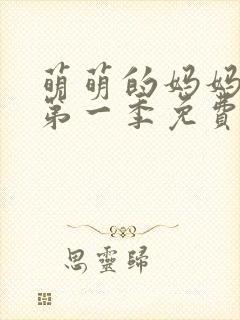 萌萌的妈妈
第一季免費
思靈歸